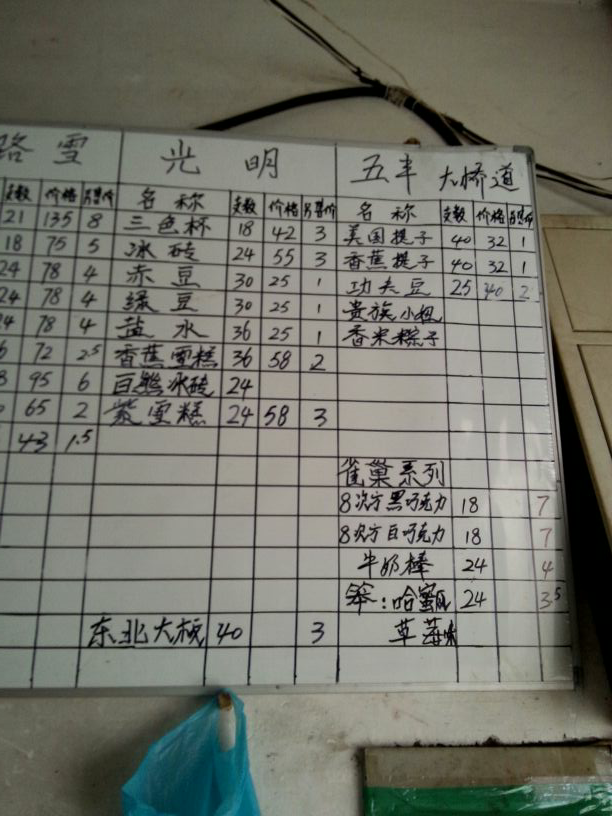 路雪 光明 五丰 大桥道
支数 价格 另售价 名称 支数 价格 另售价 名称 支数 价格 另售价
21 135 8 三色杯 18 42 3 美国提子 40 32 1
18 75 5 冰砖 24 55 3 香蕉提子 40 32 1
24 78 4 赤豆 30 25 1 功夫豆 25 40 2
24 78 4 绿豆 30 25 1 贵族小姐
24 78 4 盐水 36 25 1 香米粽子
6 72 2.5 香蕉雪糕 36 58 2
8 95 6 白熊冰砖 24
65 2 紫雪糕 24 58 3
43 1.5
雀巢系列
8次方黑巧克力 18 7
8次方白巧克力 18 7
牛奶棒 24 4
笨:哈蜜瓜 24 3.5
东北大板 40 3 草莓味